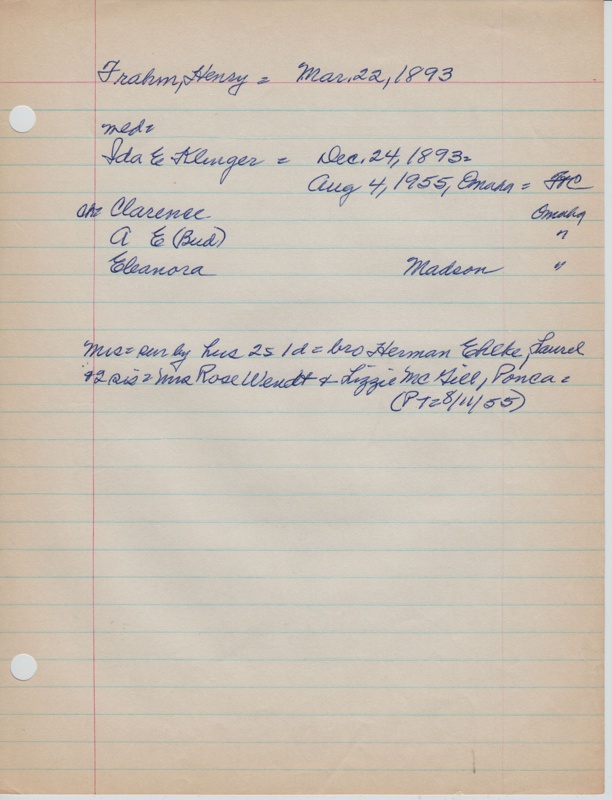 Frahm, Henry = Mar. 22, 1893
med=
Ida E Klinger = Dec. 24, 1893=
Aug 4, 1955, Omaha =
ch= Clarence Omaha
A E (Bud) "
Eleanora Madson "
Mrs= sur by hus 2s 1d= bro Herman Ehlke, Laurel
& 2 sis= Mrs Rose Wendt & Lizzie McGill, Ponca=
(PT=8/11/55)